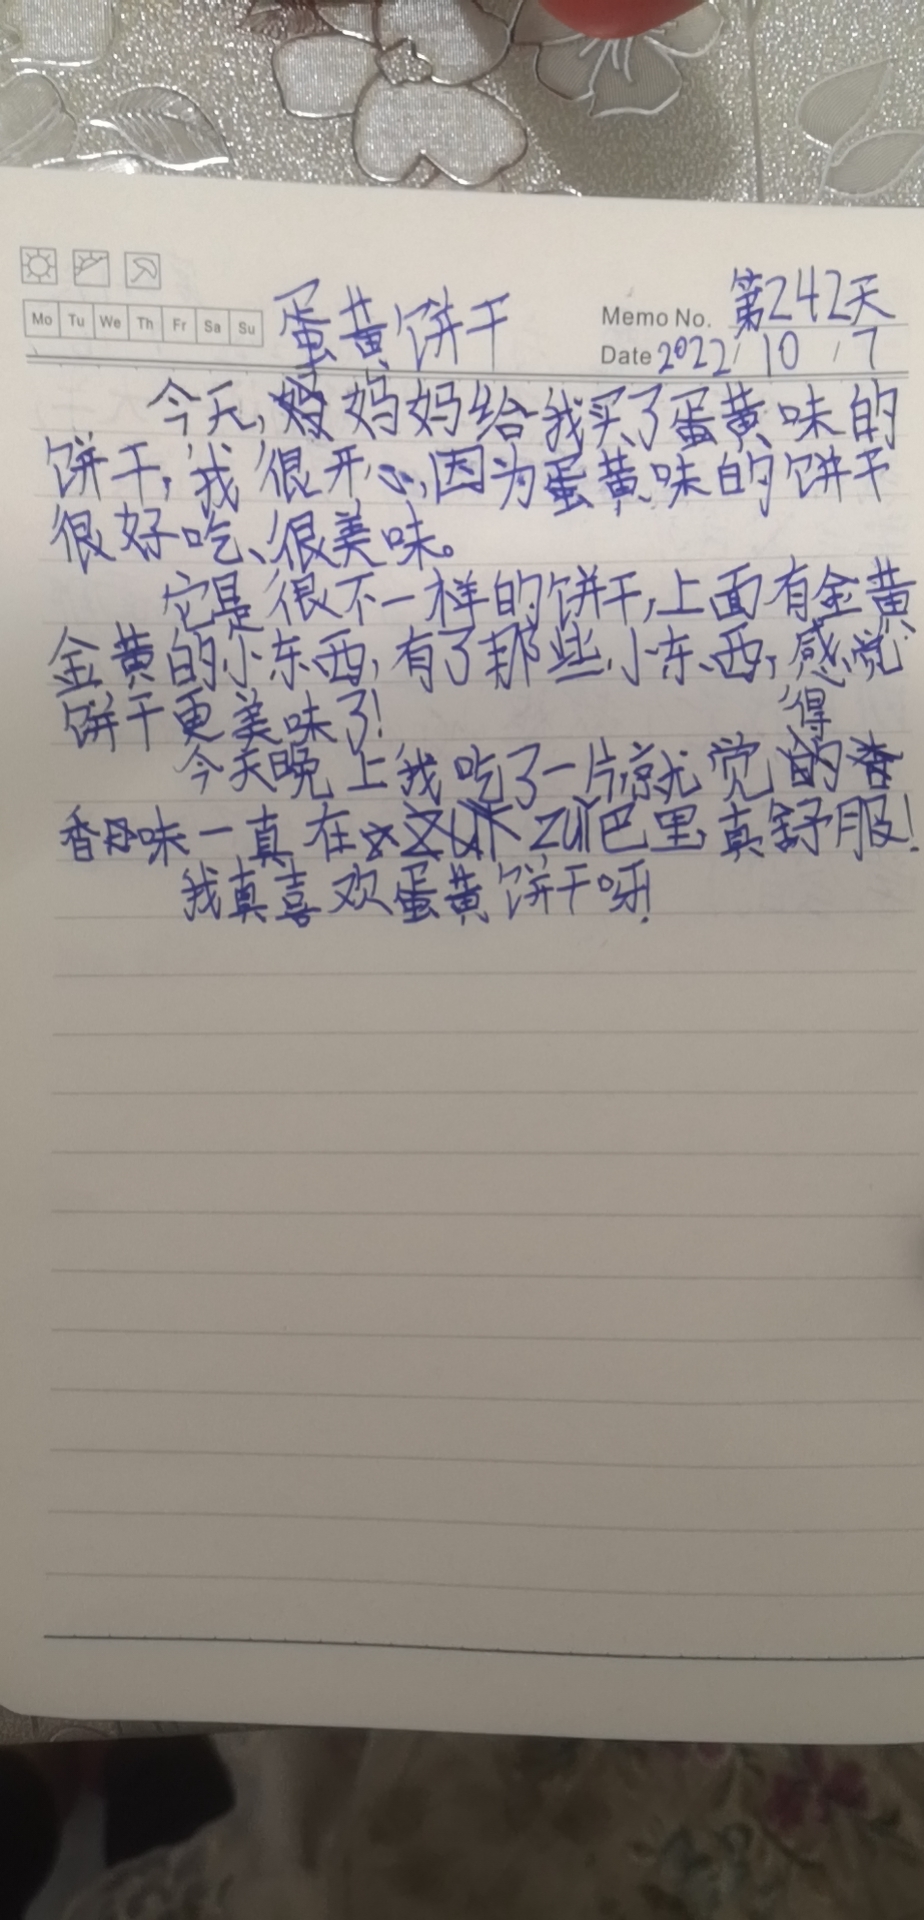 Mo Tu We Th Fr Sa Su
蛋黄饼干
Memo No. 第242天
Date 2022/10/7
今天,妈妈给我买了蛋黄味的
饼干,我很开心,因为蛋黄味的饼干
很好吃、很美味。
它是很不一样的饼干,上面有金黄
金黄的小东西,有了那些小东西,感觉
饼干更美味了!
今天晚上我吃了一片就觉得
香味一真在zuǐ巴里,真舒服!
我真喜欢蛋黄饼干呀!